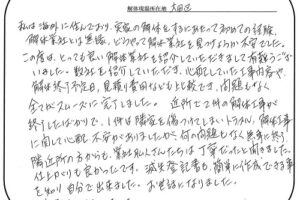 解体現場所在地 大田区
私は海外に住んでおり、実家の解体をするにあたって初めての経験、
解体業社とは無縁、どうやって解体業社を見つけようか不安でした。
この度は、とっても良い解体業社を紹介していただきまして有難うござ
いました。数社を紹介していただき、心配していた工事内容や、
解体終了予定日、見積り書面なども比較でき、問題もなく
全てがスムーズに完了しました。 近所で2件の解体工事が
終了したばかりで、1件は隣家を傷つけてしまいトラブル、解体工事
に関しても心配、不安がありましたが何の問題もなく無事に終了、
隣近所の方からも、業社職人さんたちは丁寧だったと聞きました。
仕上がりも良かったです。滅失登記書も簡単に作成できる事
を知り自分で出来ました。お世話になりました。